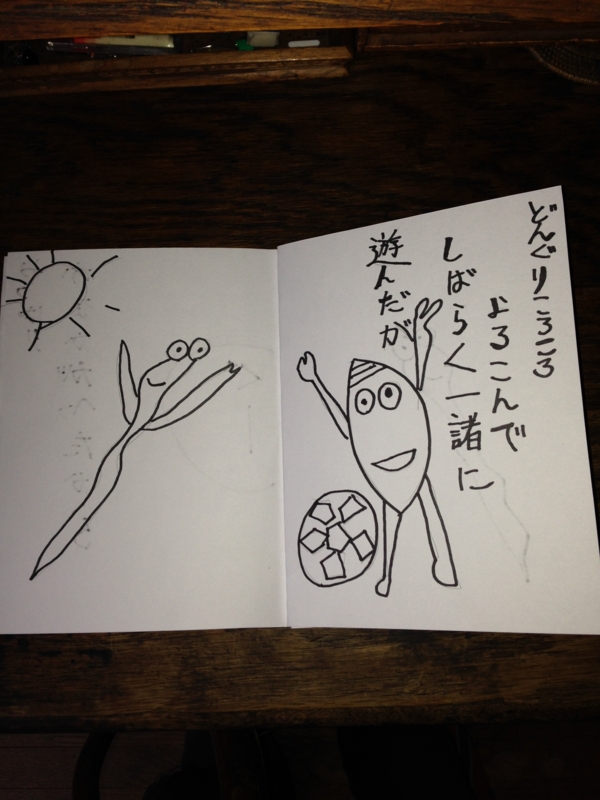 どんぐりころころ
よろこんで
しばらく一諸に
遊んだが